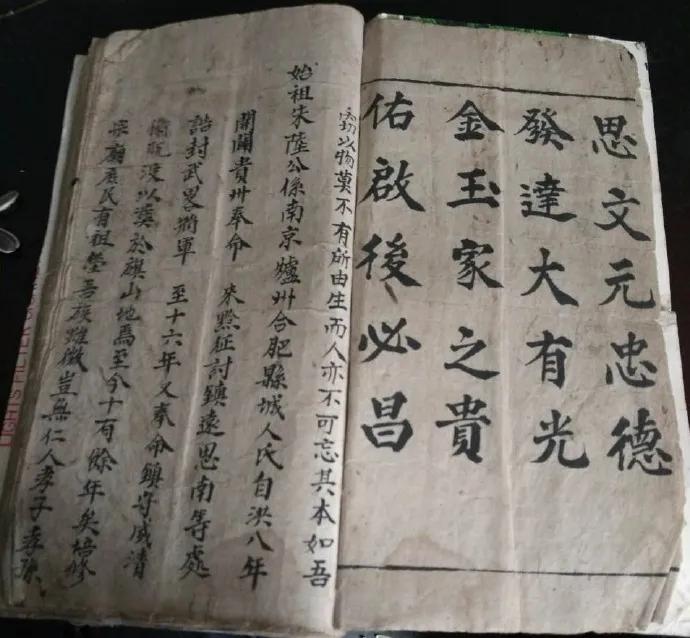 思文元忠德
發達大有光
金玉家之貴
佑啟後必昌
竊以物莫不有所由生而人亦不可忘其本如吾
始祖朱陸公係南京爐州合肥縣城人氏自洪八年
開闢貴州奉命 來黔征討鎮遠思南等處
誥封武畧將軍 至十六年又奉命鎮守威清
衛既沒以葬於旗山地焉至今十有餘年矣培修
廟居民有祖塋吾族雖微豈無仁人孝子孝孫